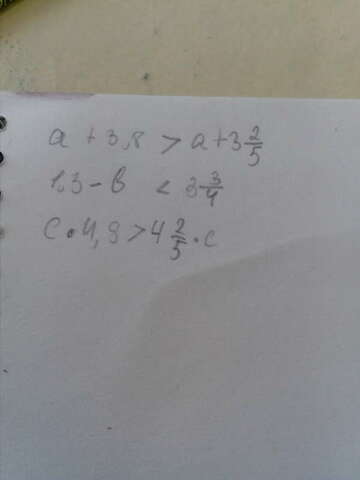 a + 3,8 > a + 3 2/5
1,3 - b < 3 3/4
c • 4,9 > 4 2/5 • c